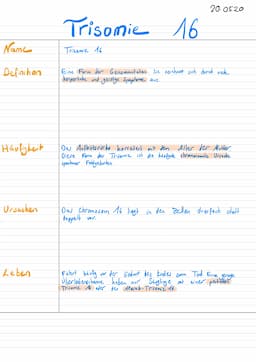 20.0520
Trisomie 16
Name
Trisomie 16
Definition
Eine Form der Genommutation. Sie zeichnet sich durch viele
körperliche und geistige Symptome aus.
Häufigkeit
Das Auftretensrisiko korreliert mit dem Alter der Mutter.
Diese Form der Trisomie ist die häufigste chromosomale Ursache
spontaner Fehlgeburten.
Ursachen
Das Chromosom 16 liegt in den Zellen dreifach statt
doppelt vor.
Leben
Führt häufig vor der Geburt des Kindes zum Tod. Eine geringe
Überlebenschance haben nur Säuglinge mit einer partiellen
Trisomie 16 oder der Mosaik-Trisomie 16.